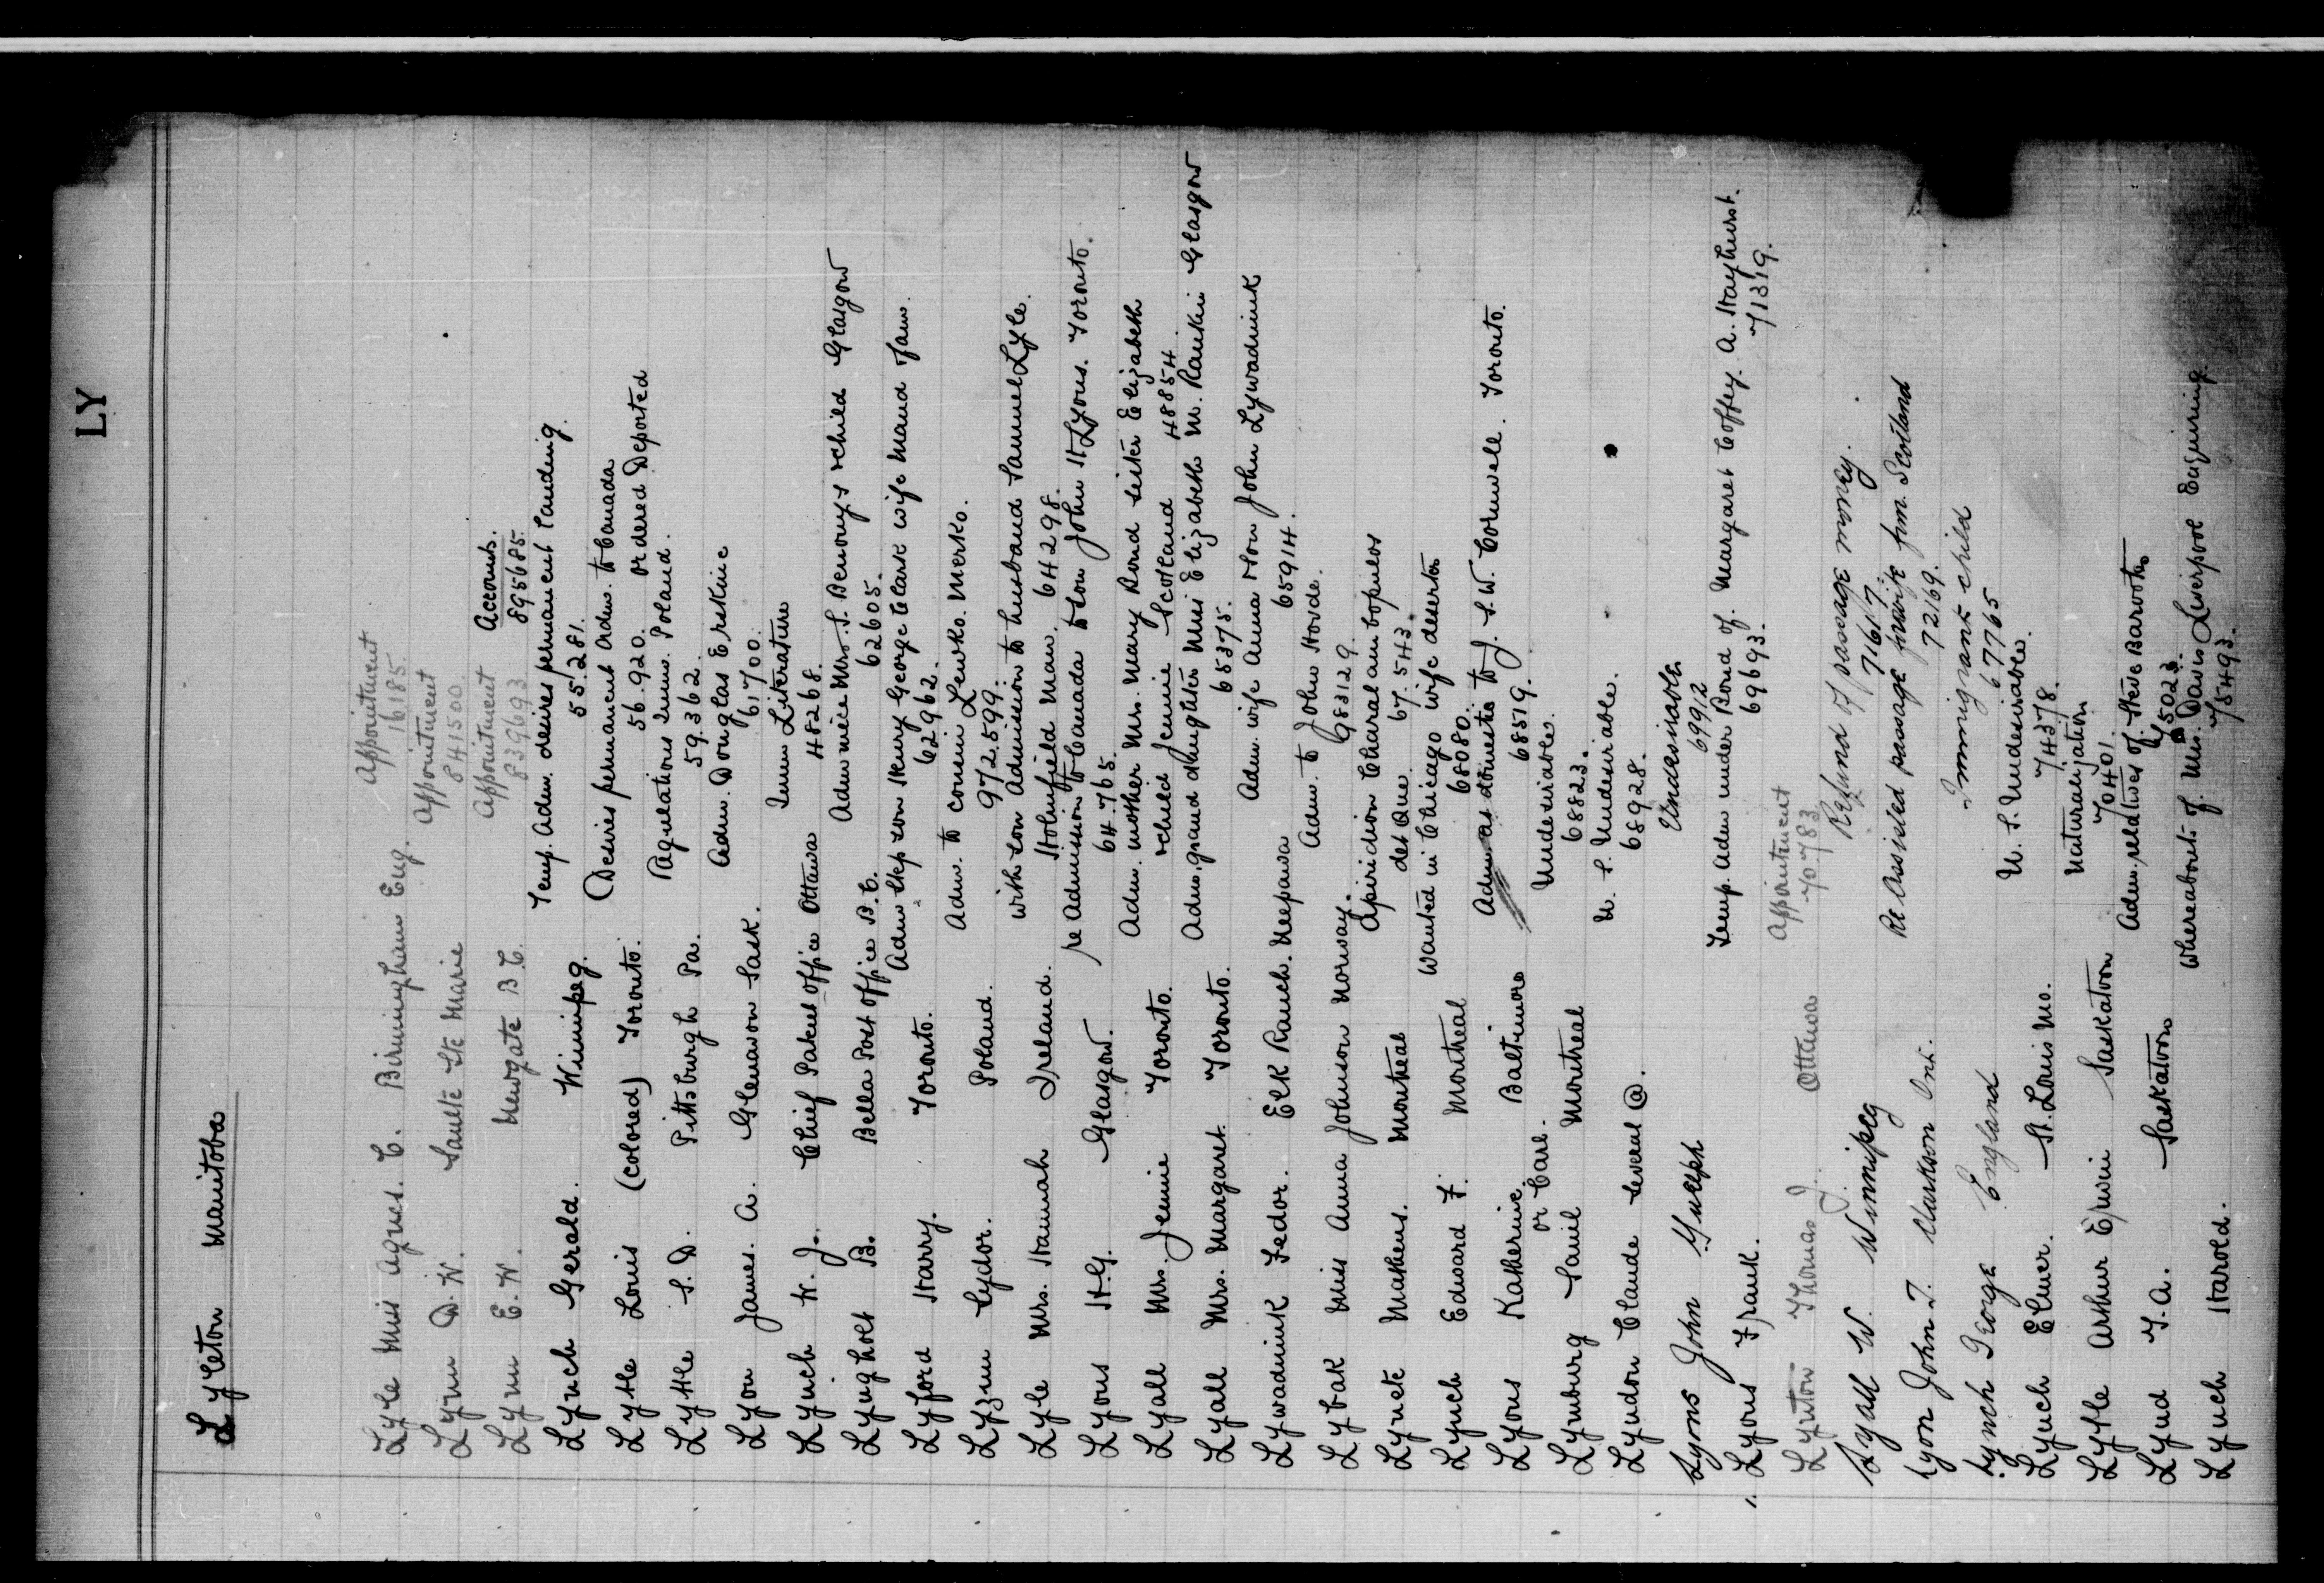 LY
Lyleton Manitoba
Appointment
Lyle Miss Agnes. C. Birmingham Eng. 16185.
Appointment
Lynn D. W. Saulte Ste Marie 841500.
Appointment Accounts.
Lynn E. W. Newgate B.C. 839693 895685.
Temp. Adm. desires permanent landing.
Lynch Gerald. Winnipeg. 55.281.
Desires permanent Adm. to Canada
Lyttle Louis (Colored) Toronto. 56.920. ordered Deported
Regulations Imm. Poland.
Lyttle S. D. Pittsburgh Pa. 59.362.
Adm. Douglas Erskine
Lyon James. A. Glenavon Sask. 61700.
Imm Literature
Lynch W. J. Chief Patent Office Ottawa 48268.
Adm niece Mrs. S. Benony & child Glasgow
Lyngholt B. Bella Post Office B.C. 62605.
Adm step son Henry George Clark wife Maud Jaws.
Lyford Harry. Toronto. 62962.
Adm. to cousin Lewko. Merko.
Lyzun Sydor. Poland. 972.599.
with son Admission to husband Samuel Lyle.
Lyle Mrs. Hannah Ireland. Holmfield Man. 64298.
re Admission to Canada to son John H Lyons. Toronto.
Lyons H.G. Glasgow. 64.765.
Adm. mother Mrs. Mary Rond sister Elizabeth
Lyall Mrs. Jennie Toronto. & child Jennie Scotland 48854
Adm. grand daughter Miss Elizabeth M. Rankin Glasgow
Lyall Mrs. Margaret. Toronto. 65375.
Adm. wife Anna & son John Lywadniuk
Lywadniuk Fedor. Elk Ranch. Neepawa 65914.
Adm. to John Hovde.
Lybak Miss Anna Johnson Norway. 983129.
Spiridion Charalambopulos
Lynett Mathens. Montreal det Que. 67.543.
Wanted in Chicago wife deserter
Lynch Edward F. Montreal 68080.
Adm. as domestic to J. S. W. Cornwell. Toronto.
Lyons Katherine. Baltimore 68519.
or Carl. Undesirable.
Lynburg Saml Montreal 68823.
U. S. Undesirable.
Lyndon Claude several @. 68928.
Undesirable
Lyons John Guelph 69912
Temp. Adm under Bond of. Margaret Coffey. A. Hayhurst.
" Lyons Frank. 69693. 71319.
Appointment
Lynton Thomas J. Ottawa 70.783
Refund of passage money.
Lyall W. Winnipeg 71617.
Re Assisted passage for wife frm. Scotland
Lyon John T. Clarkson Ont. 72169.
Immigrant child
Lynch George England 67765
U. S. Undesirable.
Lynch Elmer. St. Louis Mo. 74378.
Naturalization
Lytle Arthur Erwin Saskatoon 70401.
Adm. relatives of. Steve Barootes
Lynd T. A. Saskatoon 75023.
Whereabouts of. Mrs. Davis Liverpool Enquiring.
Lynch Harold. 75493.